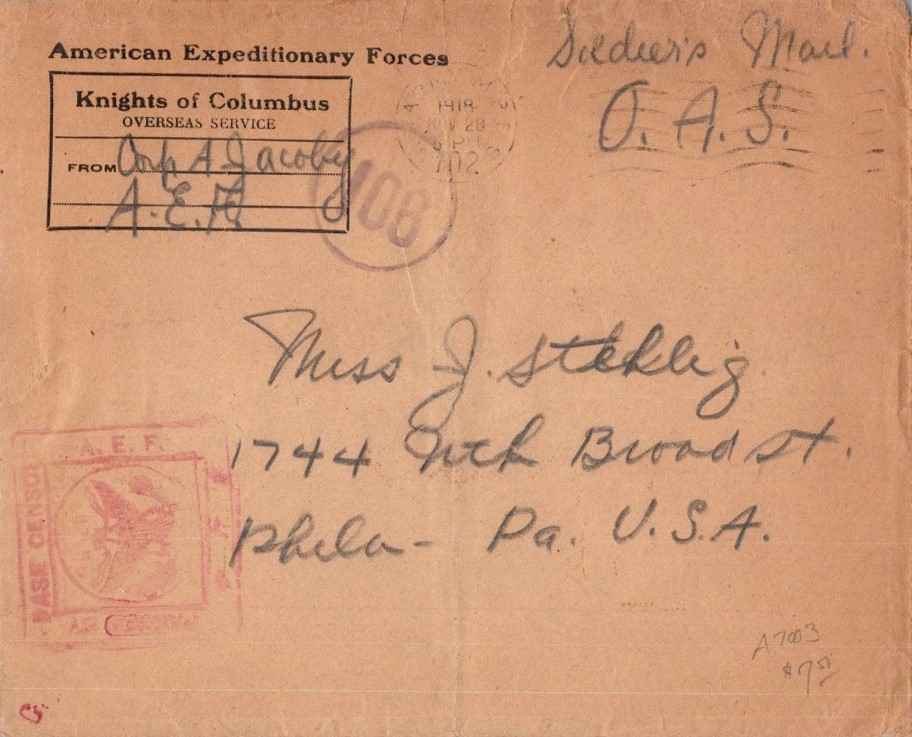 American Expeditionary Forces
Soldier's Mail.
O. A. S.
Knights of Columbus
OVERSEAS SERVICE
FROM Corp A. Jacoby
A.E.F.
1918
NOV 28
702
108
Miss J. Steklig
1744 Nth Broad St.
Phila - Pa. U.S.A.
A.E.F.
BASE CENSOR
A7003